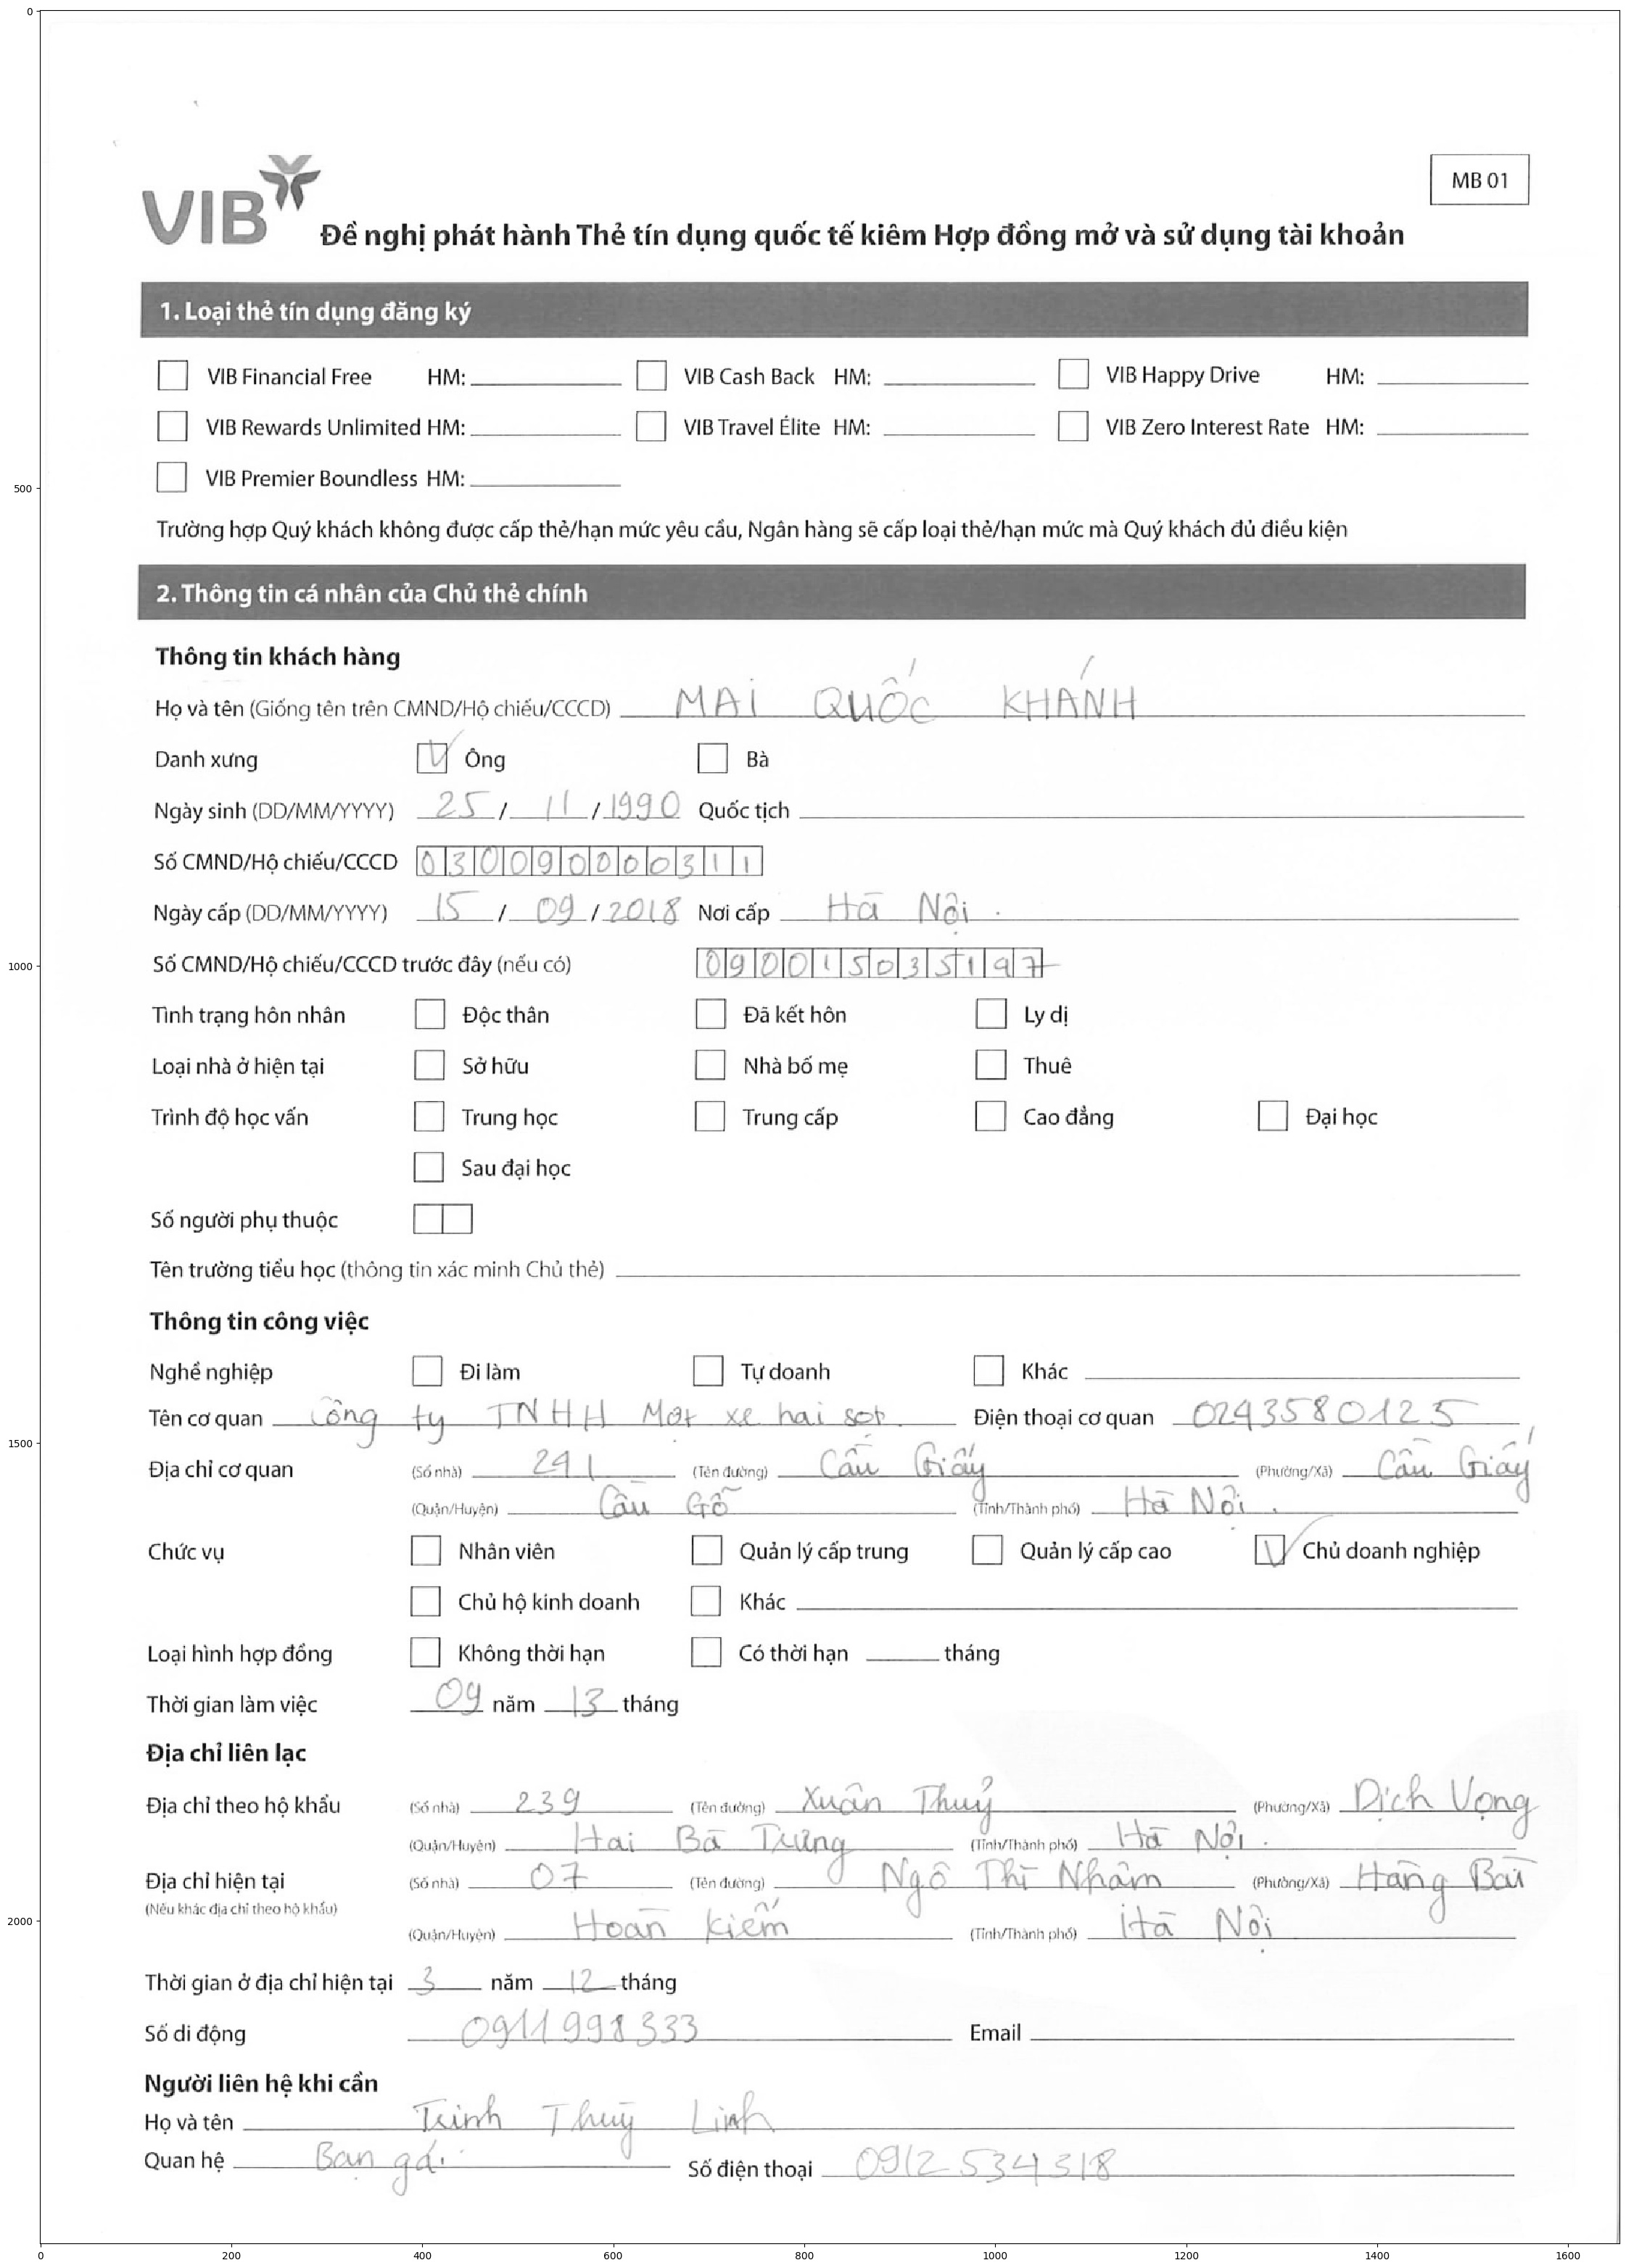 MB 01
VIB
Đề nghị phát hành Thẻ tín dụng quốc tế kiêm Hợp đồng mở và sử dụng tài khoản
1. Loại thẻ tín dụng đăng ký
VIB Financial Free HM: VIB Cash Back HM: VIB Happy Drive HM:
VIB Rewards Unlimited HM: VIB Travel Élite HM: VIB Zero Interest Rate HM:
VIB Premier Boundless HM:
Trường hợp Quý khách không được cấp thẻ/hạn mức yêu cầu, Ngân hàng sẽ cấp loại thẻ/hạn mức mà Quý khách đủ điều kiện
2. Thông tin cá nhân của Chủ thẻ chính
Thông tin khách hàng
Họ và tên (Giống tên trên CMND/Hộ chiếu/CCCD) MAI QUỐC KHÁNH
Danh xưng Ông Bà
Ngày sinh (DD/MM/YYYY) 25 / 11 / 1990 Quốc tịch
Số CMND/Hộ chiếu/CCCD 030090000311
Ngày cấp (DD/MM/YYYY) 15 / 09 / 2018 Nơi cấp Hà Nội.
Số CMND/Hộ chiếu/CCCD trước đây (nếu có) 090015035197
Tình trạng hôn nhân Độc thân Đã kết hôn Ly dị
Loại nhà ở hiện tại Sở hữu Nhà bố mẹ Thuê
Trình độ học vấn Trung học Trung cấp Cao đẳng Đại học
Sau đại học
Số người phụ thuộc
Tên trường tiểu học (thông tin xác minh Chủ thẻ)
Thông tin công việc
Nghề nghiệp Đi làm Tự doanh Khác
Tên cơ quan Công ty TNHH Một xe hai sọt. Điện thoại cơ quan 0243580125
Địa chỉ cơ quan (Số nhà) 241 (Tên đường) Cầu Giấy (Phường/Xã) Cầu Giấy
(Quận/Huyện) Cầu Gỗ (Tỉnh/Thành phố) Hà Nội.
Chức vụ Nhân viên Quản lý cấp trung Quản lý cấp cao Chủ doanh nghiệp
Chủ hộ kinh doanh Khác
Loại hình hợp đồng Không thời hạn Có thời hạn tháng
Thời gian làm việc 09 năm 13 tháng
Địa chỉ liên lạc
Địa chỉ theo hộ khẩu (Số nhà) 239 (Tên đường) Xuân Thuỷ (Phường/Xã) Dịch Vọng
(Quận/Huyện) Hai Bà Trưng (Tỉnh/Thành phố) Hà Nội.
Địa chỉ hiện tại (Số nhà) 07 (Tên đường) Ngô Thì Nhậm (Phường/Xã) Hàng Bài
(Nếu khác địa chỉ theo hộ khẩu)
(Quận/Huyện) Hoàn Kiếm (Tỉnh/Thành phố) Hà Nội
Thời gian ở địa chỉ hiện tại 3 năm 12 tháng
Số di động 0911998333 Email
Người liên hệ khi cần
Họ và tên Trinh Thuỳ Linh
Quan hệ Bạn gái. Số điện thoại 0912534318